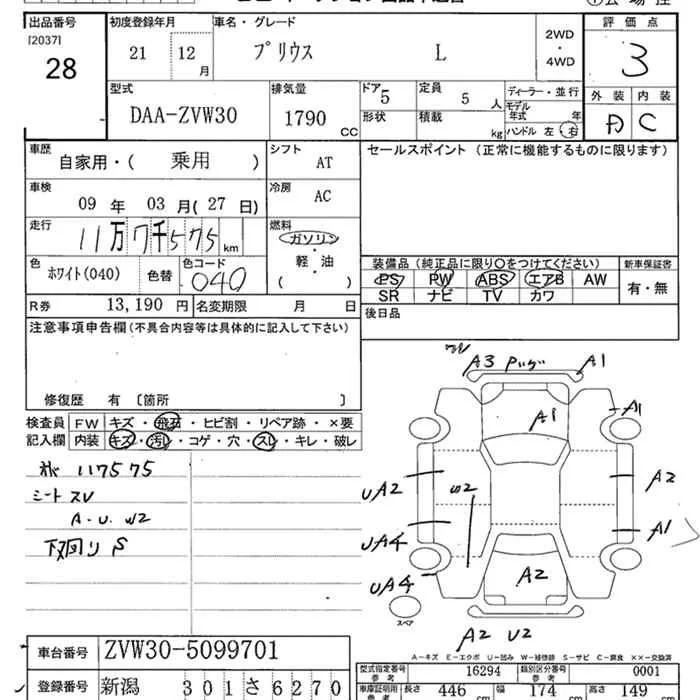 出品番号 初度登録年月 車名・グレード 評価点
[2037]
28
21 12月 プリウス L 2WD・4WD 3
型式 排気量 ドア 定員 ディーラー・並行 外装 内装
DAA-ZVW30 1790 CC 5 5人 モデル年式 年
形状 積載 kg ハンドル 左・右 A C
車歴 シフト セールスポイント (正常に機能するものに限ります)
自家用・( 乗用 ) AT
車検 冷房
09年 03月(27日) AC
走行 燃料
11万7千575km ガソリン・軽・油 ( )
色 色コード 装備品 (純正品に限り○をつけてください) 新車保証書
ホワイト(040) 色替 040 PS PW ABS エアB AW 有・無
SR ナビ TV カワ
R券 13,190円 名変期限 月 日
後日品
注意事項申告欄(不具合内容等は具体的に記入して下さい)
修復歴 有 〔箇所 〕
検査員 FW キズ・飛石・ヒビ割・リペア跡・×要
記入欄 内装 キズ・汚レ・コゲ・穴・スレ・キレ・破レ
117575
シートスレ
A・U W2
下廻りS
A3 A1
A1 A1
UA2 W2 A2
UA4 A1
UA4 A2
スペア
A2 U2
A-キズ E-エクボ U-凹み W-補修跡 S-サビ C-腐食 XX-交換済
車台番号 ZVW30-5099701
型式指定番号 参考 16294 類別区分番号 参考 0001
登録番号 新潟 301さ6270
車庫証明用 参考 長さ 446 cm 幅 174 cm 高さ 149 cm